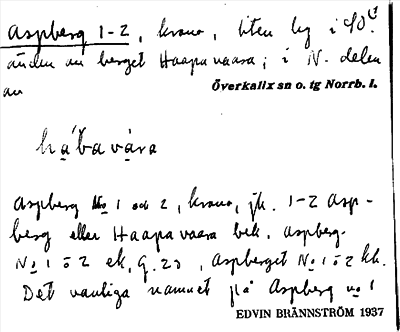 Aspberg 1-2, krono, liten by i SO.
änden av berget Haapavaara; i N. delen
av
Överkalix sn o. tg Norrb. l.
hábavàra
Aspberg No 1 och 2, krono, jk. 1-2 Asp-
berg eller Haapavaara bek. Aspberg
No 1 o 2 ek, G. 23, Aspberget No 1 o 2 kk.
Det vanliga namnet på Aspberg no 1
EDVIN BRÄNNSTRÖM 1937